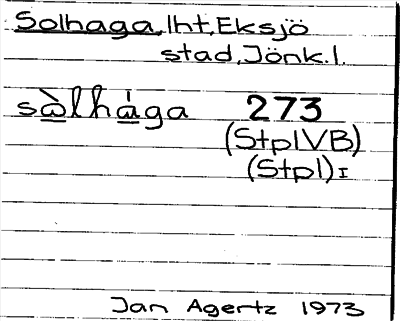 Solhaga, lht, Eksjö
stad, Jönk. l.
sàlhága 273
(StplVB)
(Stpl) I
Jan Agertz 1973